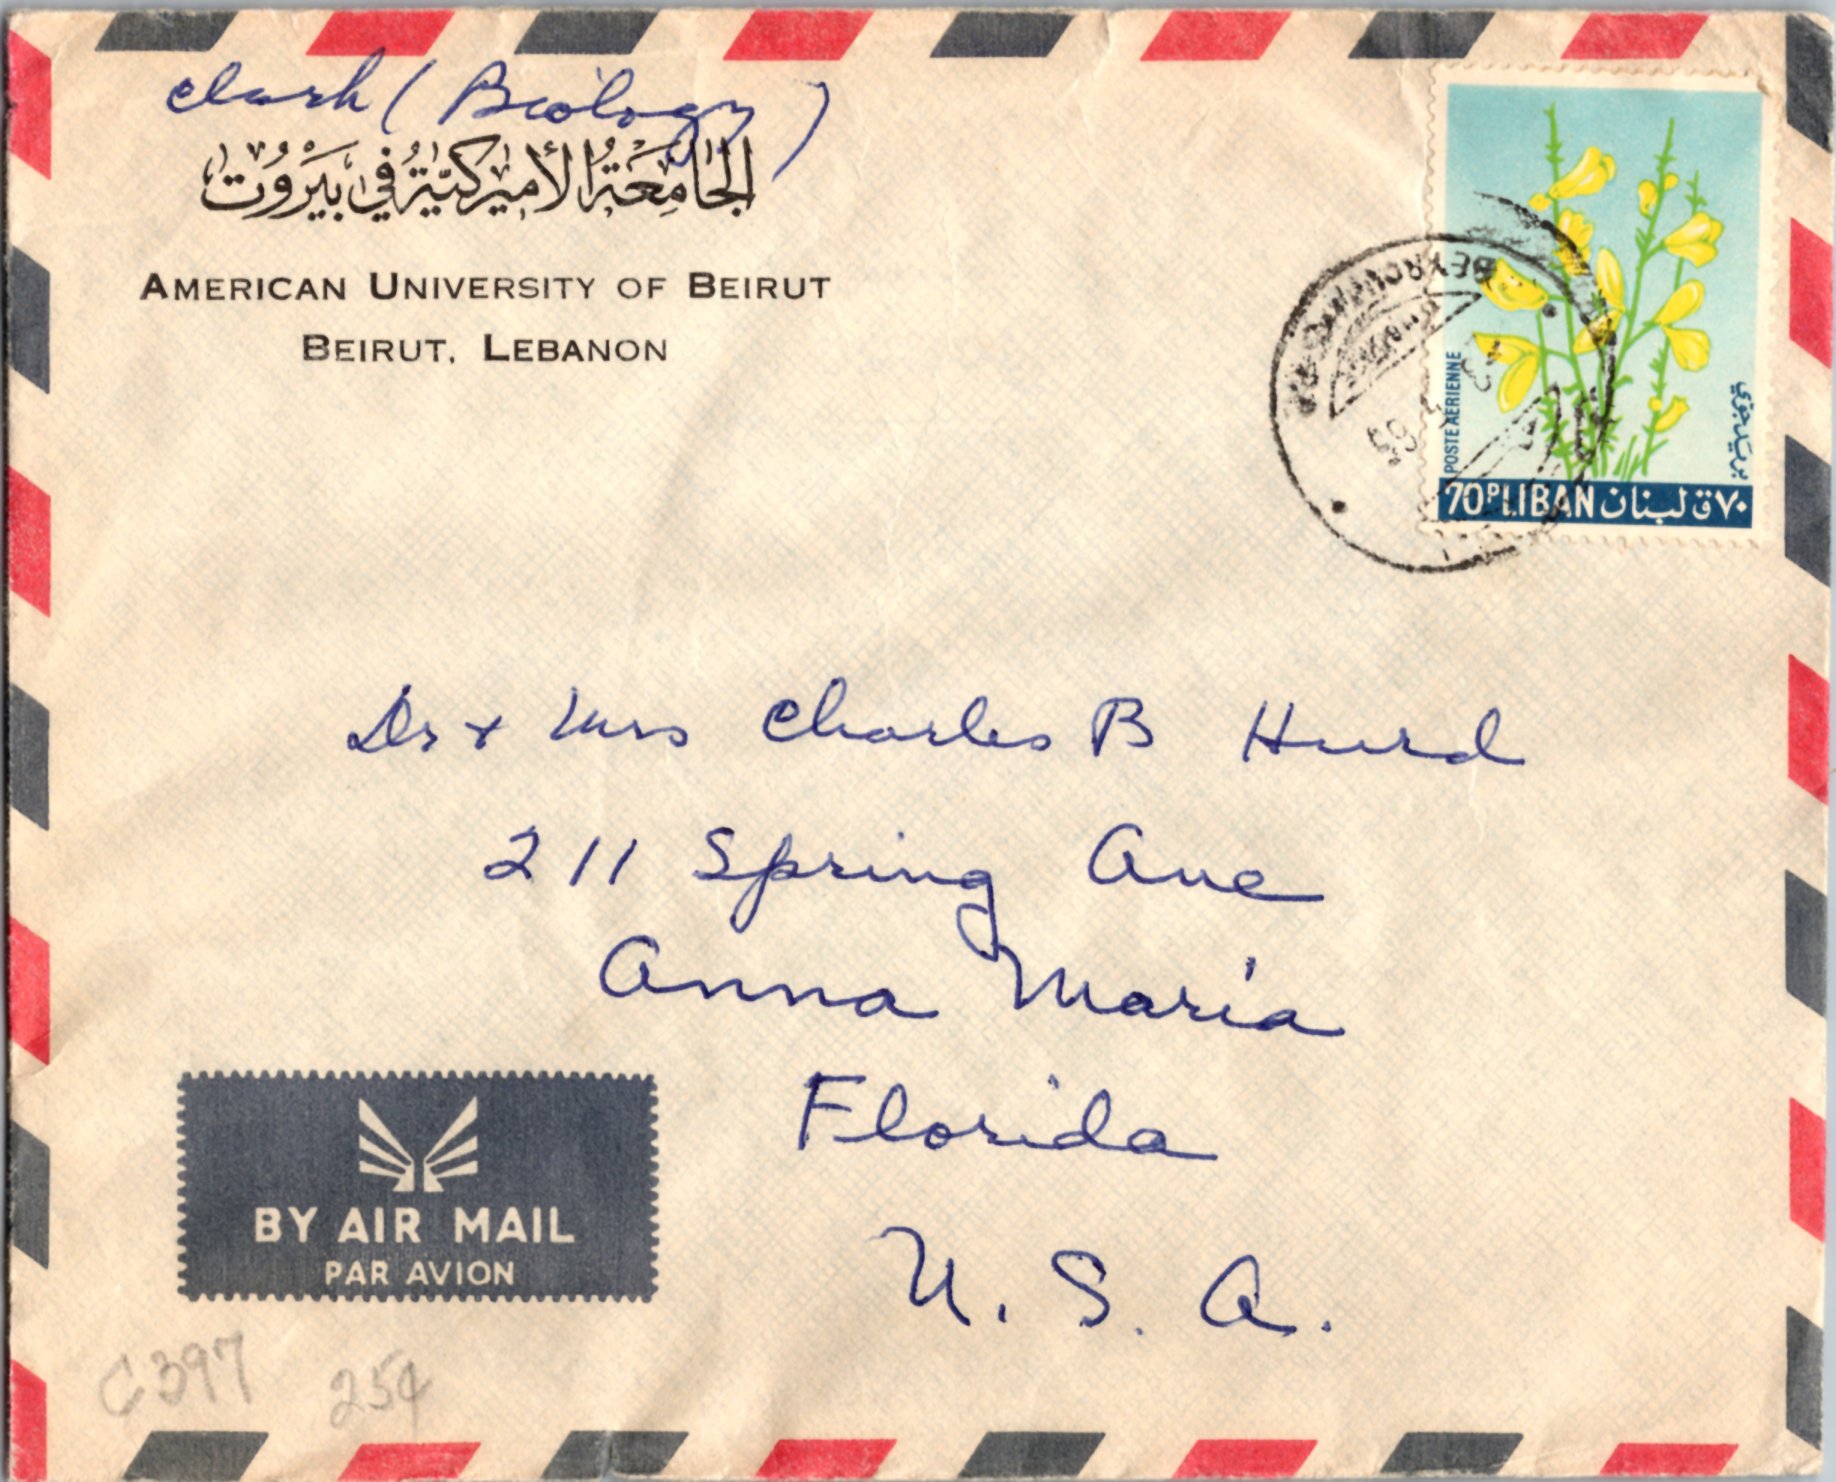 Clark (Biology)
الجامعة الأميركية في بيروت
AMERICAN UNIVERSITY OF BEIRUT
BEIRUT, LEBANON
BEYROUTH
POSTE AERIENNE
70P LIBAN لبنان ٧٠ق
Dr + Mrs Charles B Hurd
211 Spring Ave
Anna Maria
Florida
U. S. A.
BY AIR MAIL
PAR AVION
C397 25¢